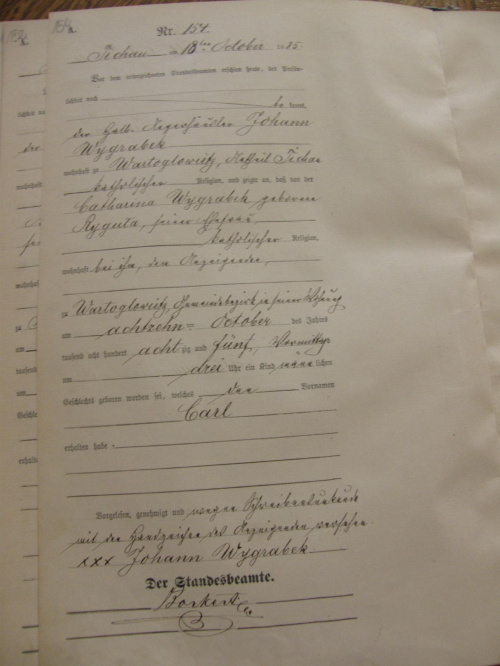 154
Nr. 154
Tichau am 18ten October 1885
Vor dem unterzeichneten Standesbeamten erschien heute, der Persön-
lichkeit nach
be kannt,
der Halb-
Johann
Wygrabek
wohnhaft zu Wartoglowietz, Antheil Tichau
katholischer Religion, und zeigte an, daß von der
Catharina Wygrabek geborene
Ryguta, seiner Ehefrau,
katholischer Religion,
wohnhaft bei ihm, dem Anzeigenden,
zu Wartoglowietz, Gemeindebezirk in seiner Wohnung
am achtzehnten October des Jahres
tausend acht hundert acht zig und fünf, Vormittags
um drei Uhr ein Kind männlichen
Geschlechts geboren worden sei, welches den Vornamen
Carl
erhalten habe
Vorgelesen, genehmigt und wegen Schreibensunkunde
mit den Handzeichen des Anzeigenden versehen
xxx Johann Wygrabek
Der Standesbeamte.